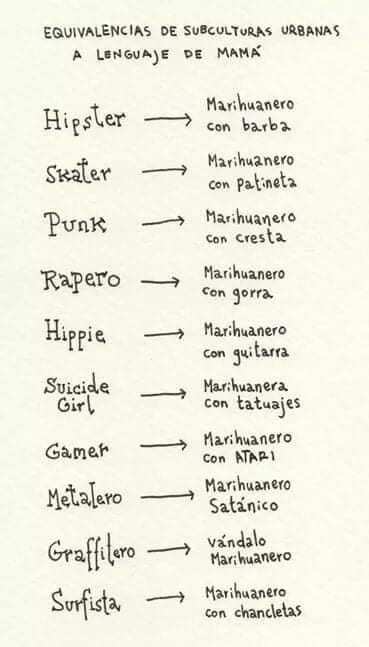 EQUIVALENCIAS DE SUBCULTURAS URBANAS
A LENGUAJE DE MAMÁ
Hipster → Marihuanero
con barba
Skater → Marihuanero
con patineta
Punk → Marihuanero
con cresta
Rapero → Marihuanero
con gorra
Hippie → Marihuanero
con guitarra
Suicide Girl → Marihuanera
con tatuajes
Gamer → Marihuanero
con ATARI
Metalero → Marihuanero
Satánico
Graffitero → vándalo
Marihuanero
Surfista → Marihuanero
con chancletas